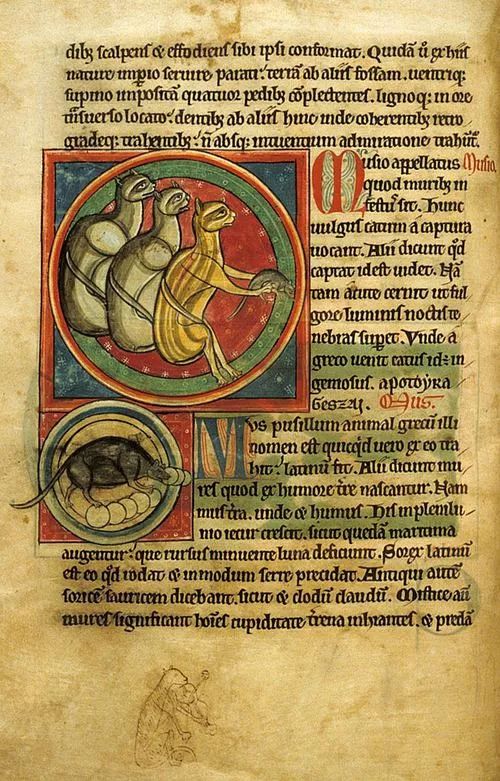 dibꝫ scalpens & effodiens sibi ipsi conformat. Quidā ū ex hiis
nature impio seruire parati. terrā ab aliis fossam. uentriqꝫ
supino impositā quatuor pedibꝫ cōplectentes. lignoqꝫ in ore
tūsuerso locato. dentibꝫ ab aliis hinc inde coherentibꝫ retro
gradeqꝫ trahentibꝫ. ñ absqꝫ intuentium admiratione trahūt᷑.
Musio appellatus Musio.
quod muribꝫ in
festus sit. Hunc
uulgus catum a captura
uocant. Alii dicunt qđ
captat id est uidet. Nā
tam acute cernit ut ful
gore luminis noctis te
nebras supet. Vnde a
greco uenit catus id÷ in
genio sus. apotoyra
Geszaj. Mus.
Mus pusillum animal grecū illi
nomen est quicqđ uero ex eo tra
hit᷑. latinū fit. Alii dicunt mu
res quod ex humore t̄re nascantur. Nam
mus t̄ra. unde & humus. His in plenilu
nio iecur crescit. sicut quedā maritima
augentur. que rursus minuente luna deficiunt. Sorex latinū
est eo qđ rodat & in modum serre precidat. Antiqui autē
soricē sauricem dicebant. sicut & clodū claudū. Mistice aūt
mures significant hoīes cupiditate t̄rena inhiantes. & predā